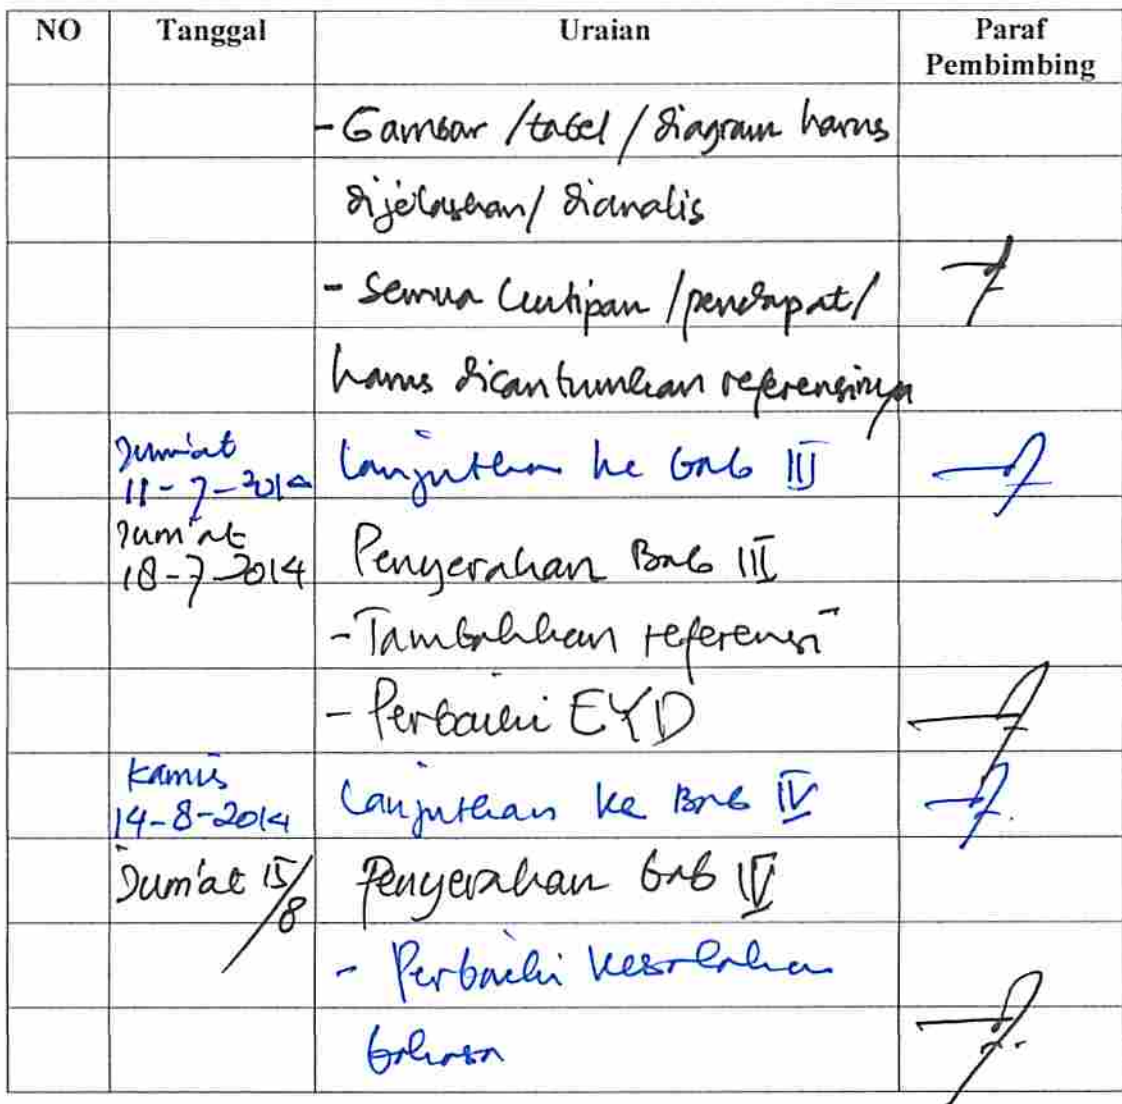 NO Tanggal Uraian Paraf Pembimbing
- Gambar / tabel / diagram harus
dijelaskan / dianalis
- Semua kutipan / pendapat /
harus dicantumkan referensinya
Jum'at
11-7-2014 Lanjutkan ke bab III
Jum'at
18-7-2014 Penyerahan Bab III
- Tambahkan referensi
- Perbaiki EYD
Kamis
14-8-2014 Lanjutkan ke Bab IV
Jum'at 15/8 Penyerahan bab IV
- Perbaiki kesalahan
bahasa